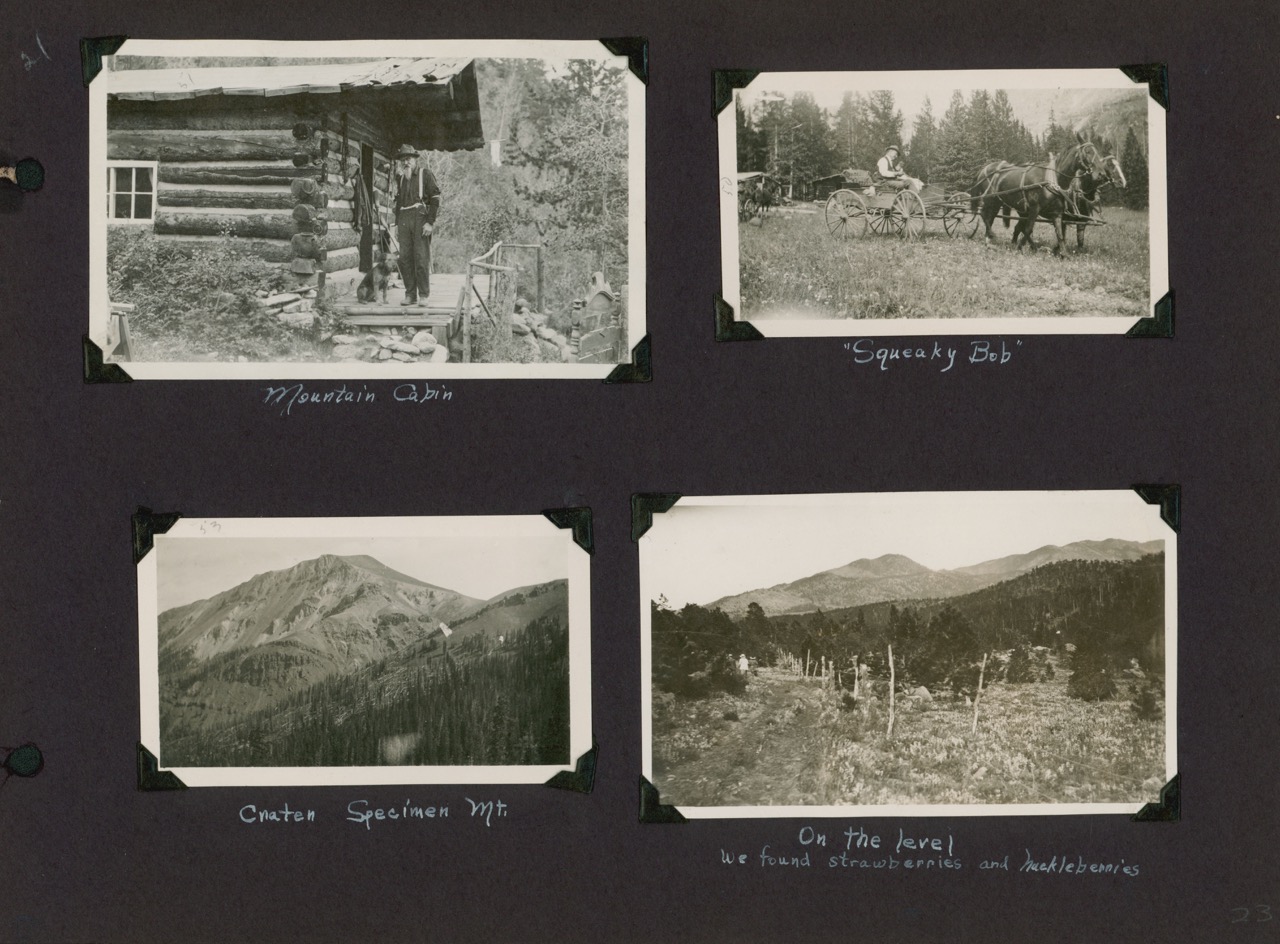 21
Mountain Cabin
50
"Squeaky Bob"
53
Crater Specimen Mt.
On the level
We found strawberries and huckleberries
23